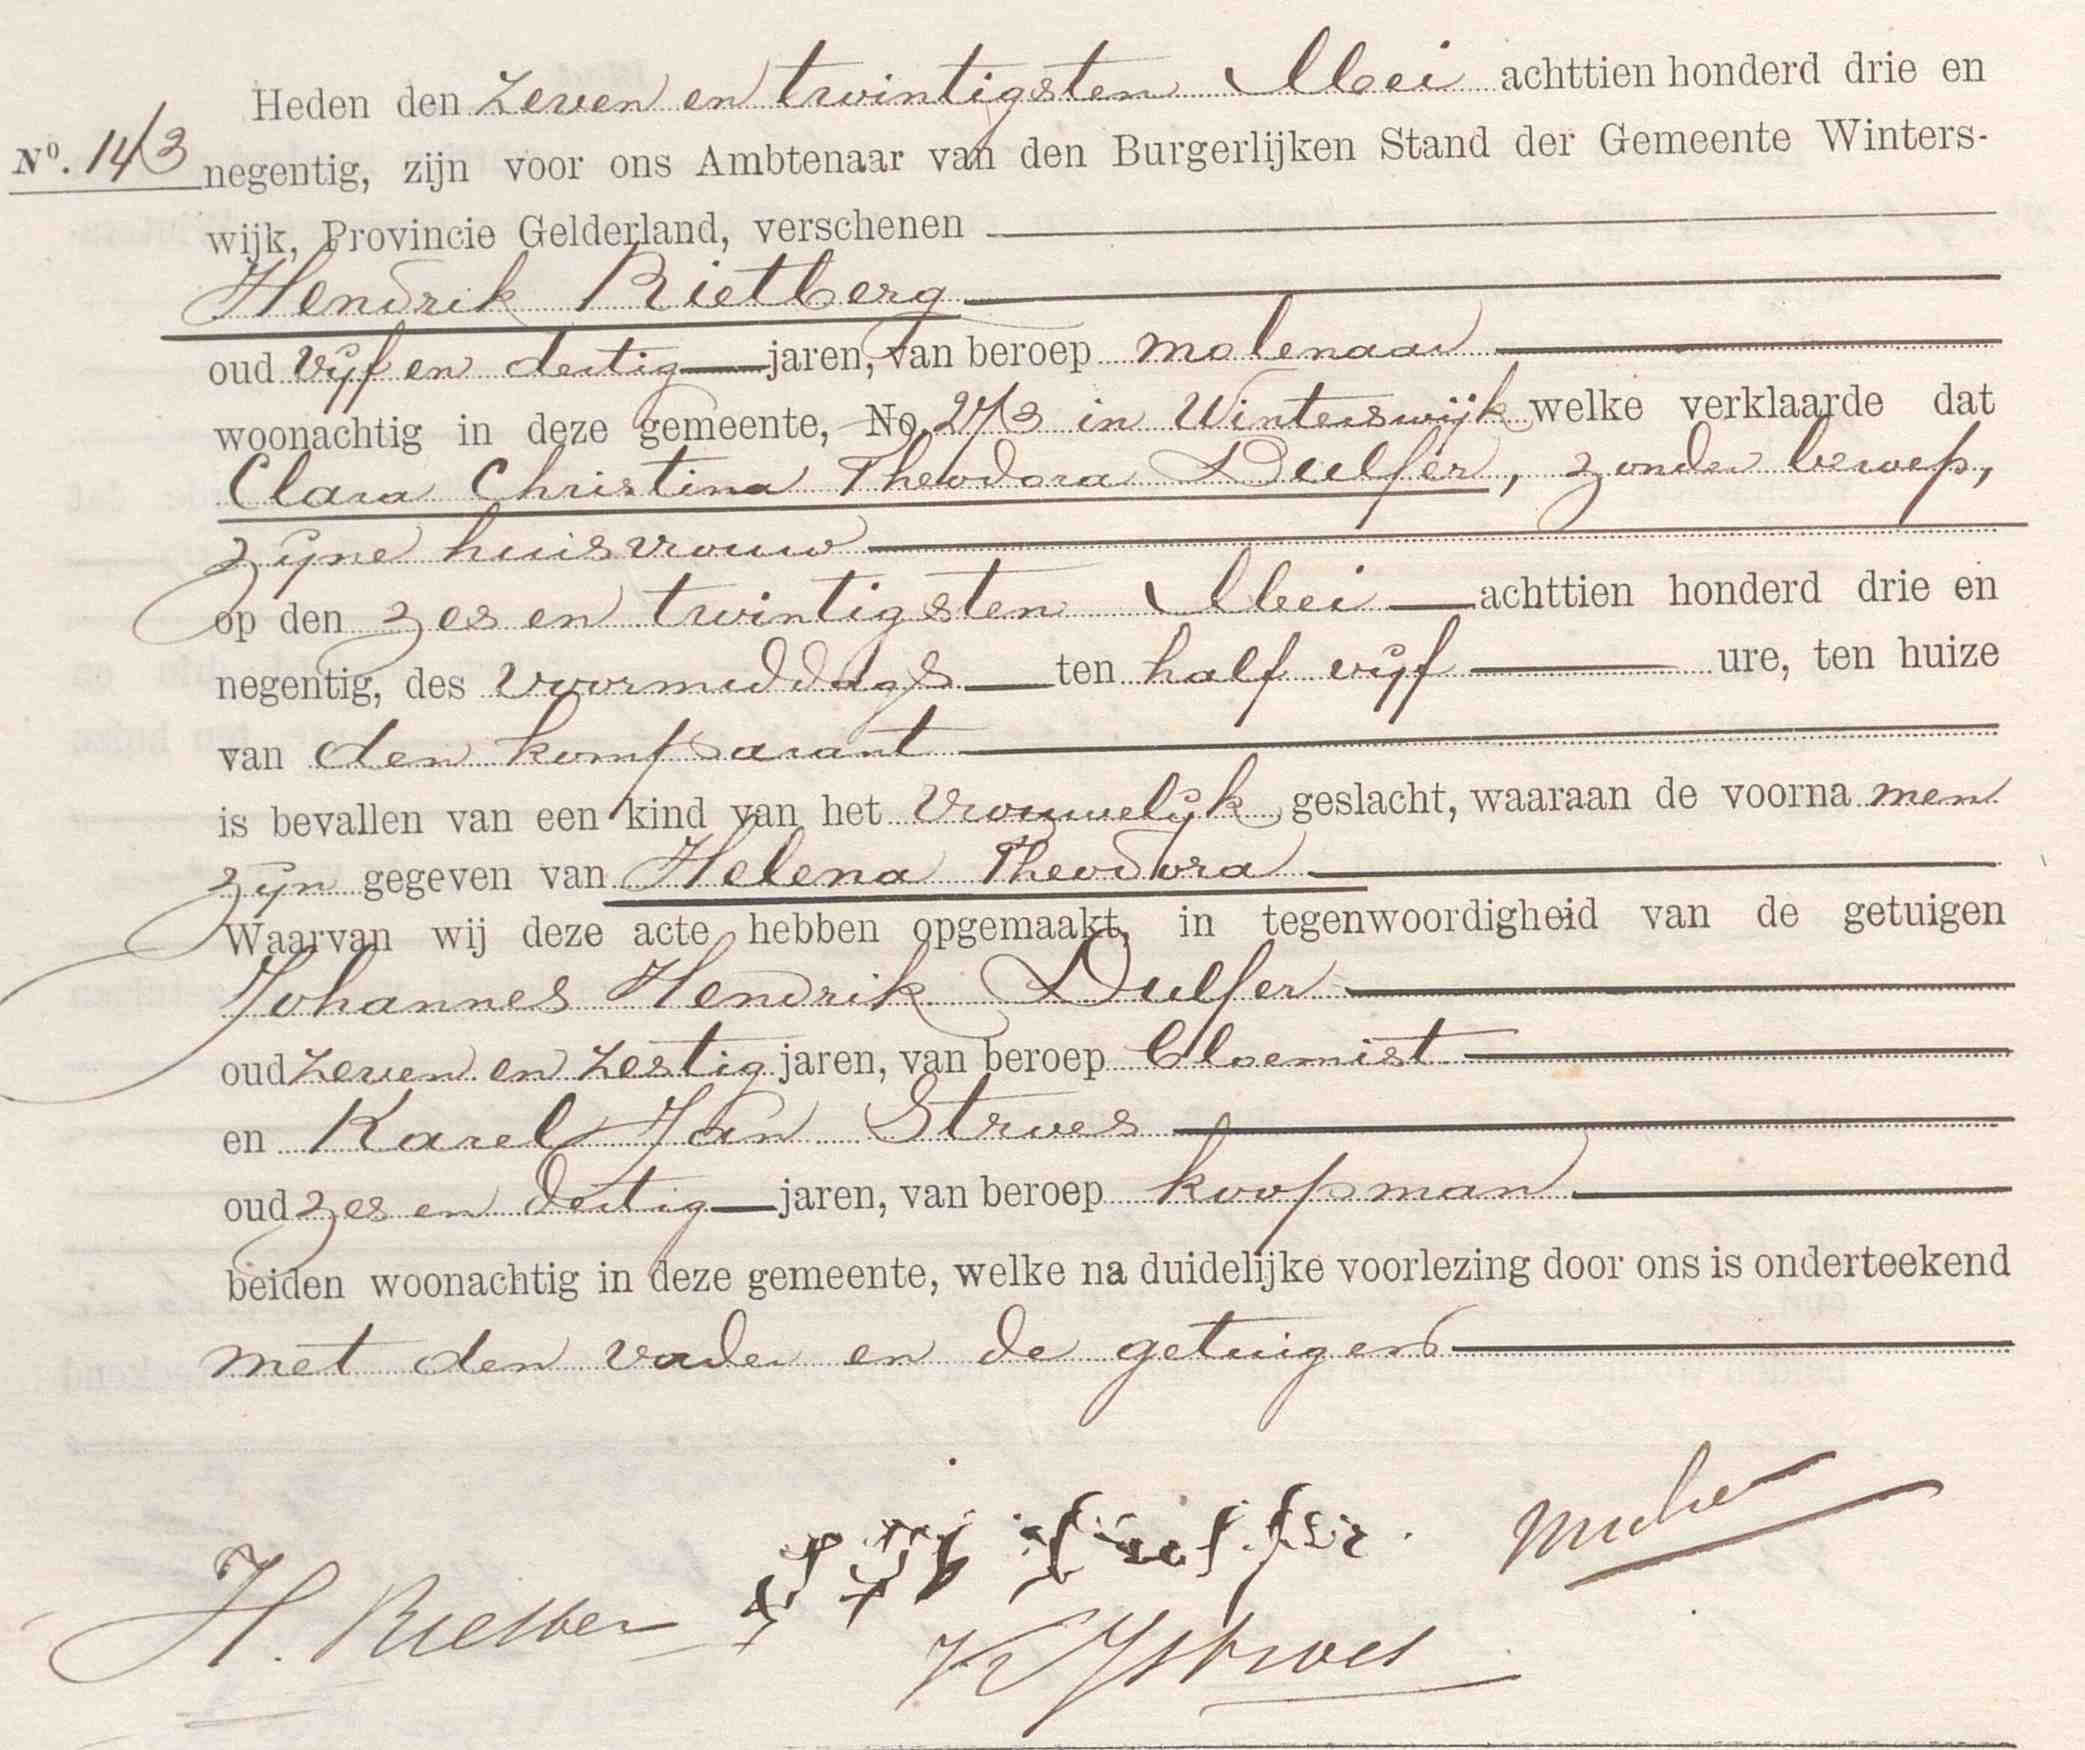 Heden den zeven en twintigsten Mei achttien honderd drie en
No. 143 negentig, zijn voor ons Ambtenaar van den Burgerlijken Stand der Gemeente Winters-
wijk, Provincie Gelderland, verschenen
Hendrik Rietberg
oud vijf en dertig jaren, van beroep molenaar
woonachtig in deze gemeente, No 273 in Winterswijk welke verklaarde dat
Clara Christina Theodora Dulfer, zonder beroep,
zijne huisvrouw
op den zes en twintigsten Mei achttien honderd drie en
negentig, des voormiddags ten half vijf ure, ten huize
van den komparant
is bevallen van een kind van het vrouwelijk geslacht, waaraan de voorna men
zijn gegeven van Helena Theodora
Waarvan wij deze acte hebben opgemaakt, in tegenwoordigheid van de getuigen
Johannes Hendrik Dulfer
oud zeven en zestig jaren, van beroep bloemist
en Karel Jan Stroes
oud zes en dertig jaren, van beroep koopman
beiden woonachtig in deze gemeente, welke na duidelijke voorlezing door ons is onderteekend
met den vader en de getuigen
H. Rietberg
K J Stroes